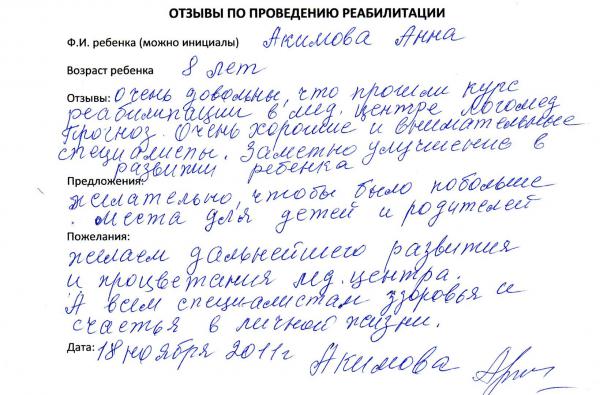 ОТЗЫВЫ ПО ПРОВЕДЕНИЮ РЕАБИЛИТАЦИИ
Ф.И. ребенка (можно инициалы) Акимова Анна
Возраст ребенка 8 лет
Отзывы: Очень довольны, что прошли курс
реабилитации в мед. центре Логомед
Прогноз. Очень хорошие и внимательные
специалисты. Заметно улучшение в
развитии ребенка
Предложения:
желательно, чтобы было побольше
места для детей и родителей
Пожелания:
желаем дальнейшего развития
и процветания мед. центра.
А всем специалистам здоровья и
счастья в личной жизни.
Дата: 18 ноября 2011г Акимова